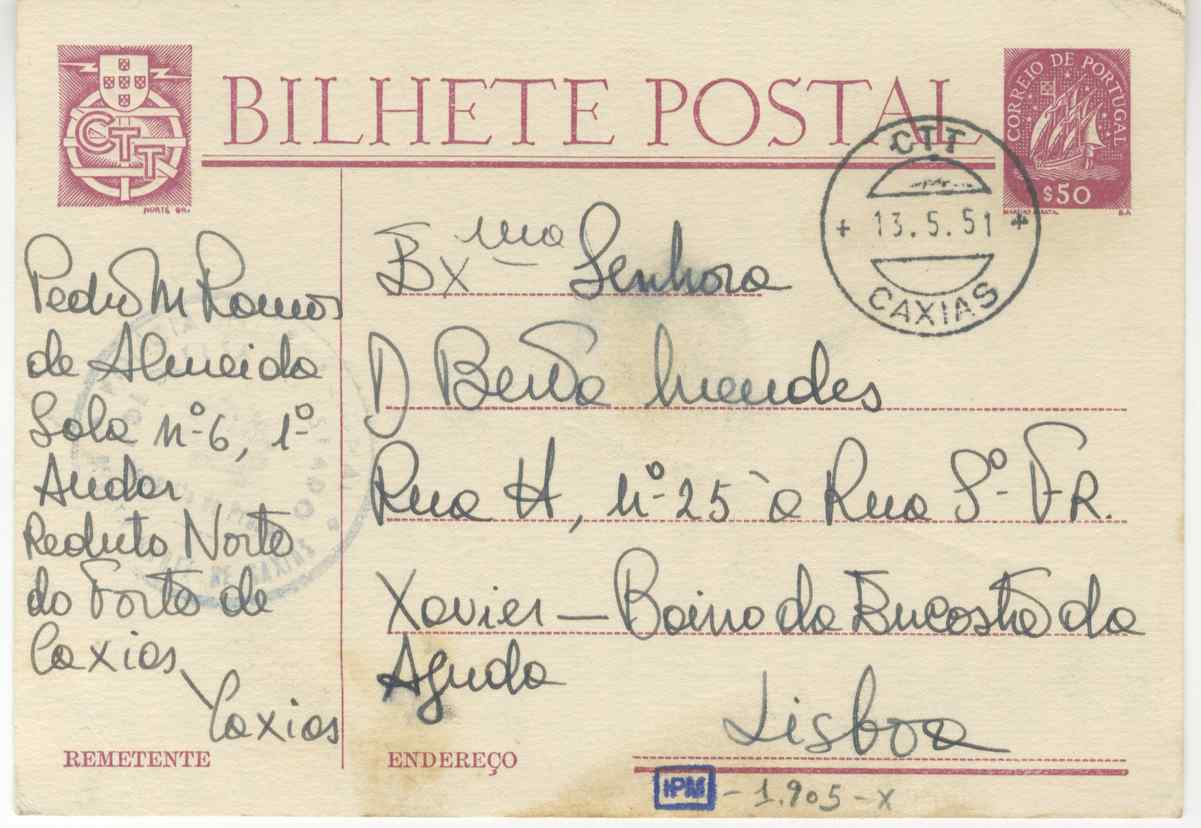 BILHETE POSTAL
CTT
NORTE GR.
CORREIO DE PORTUGAL
$50
CTT
13.5.51
CAXIAS
Pedro M Ramos
de Almeida
Sala nº 6, 1º
Andar
Reduto Norte
do Forte de
Caxias
Caxias
REMETENTE
Exma Senhora
D Berta Mendes
Rua H, nº 25 à Rua S. FR.
Xavier — Bairro da Encosta da
Ajuda
Lisboa
ENDEREÇO
IPM - 1.905 - X